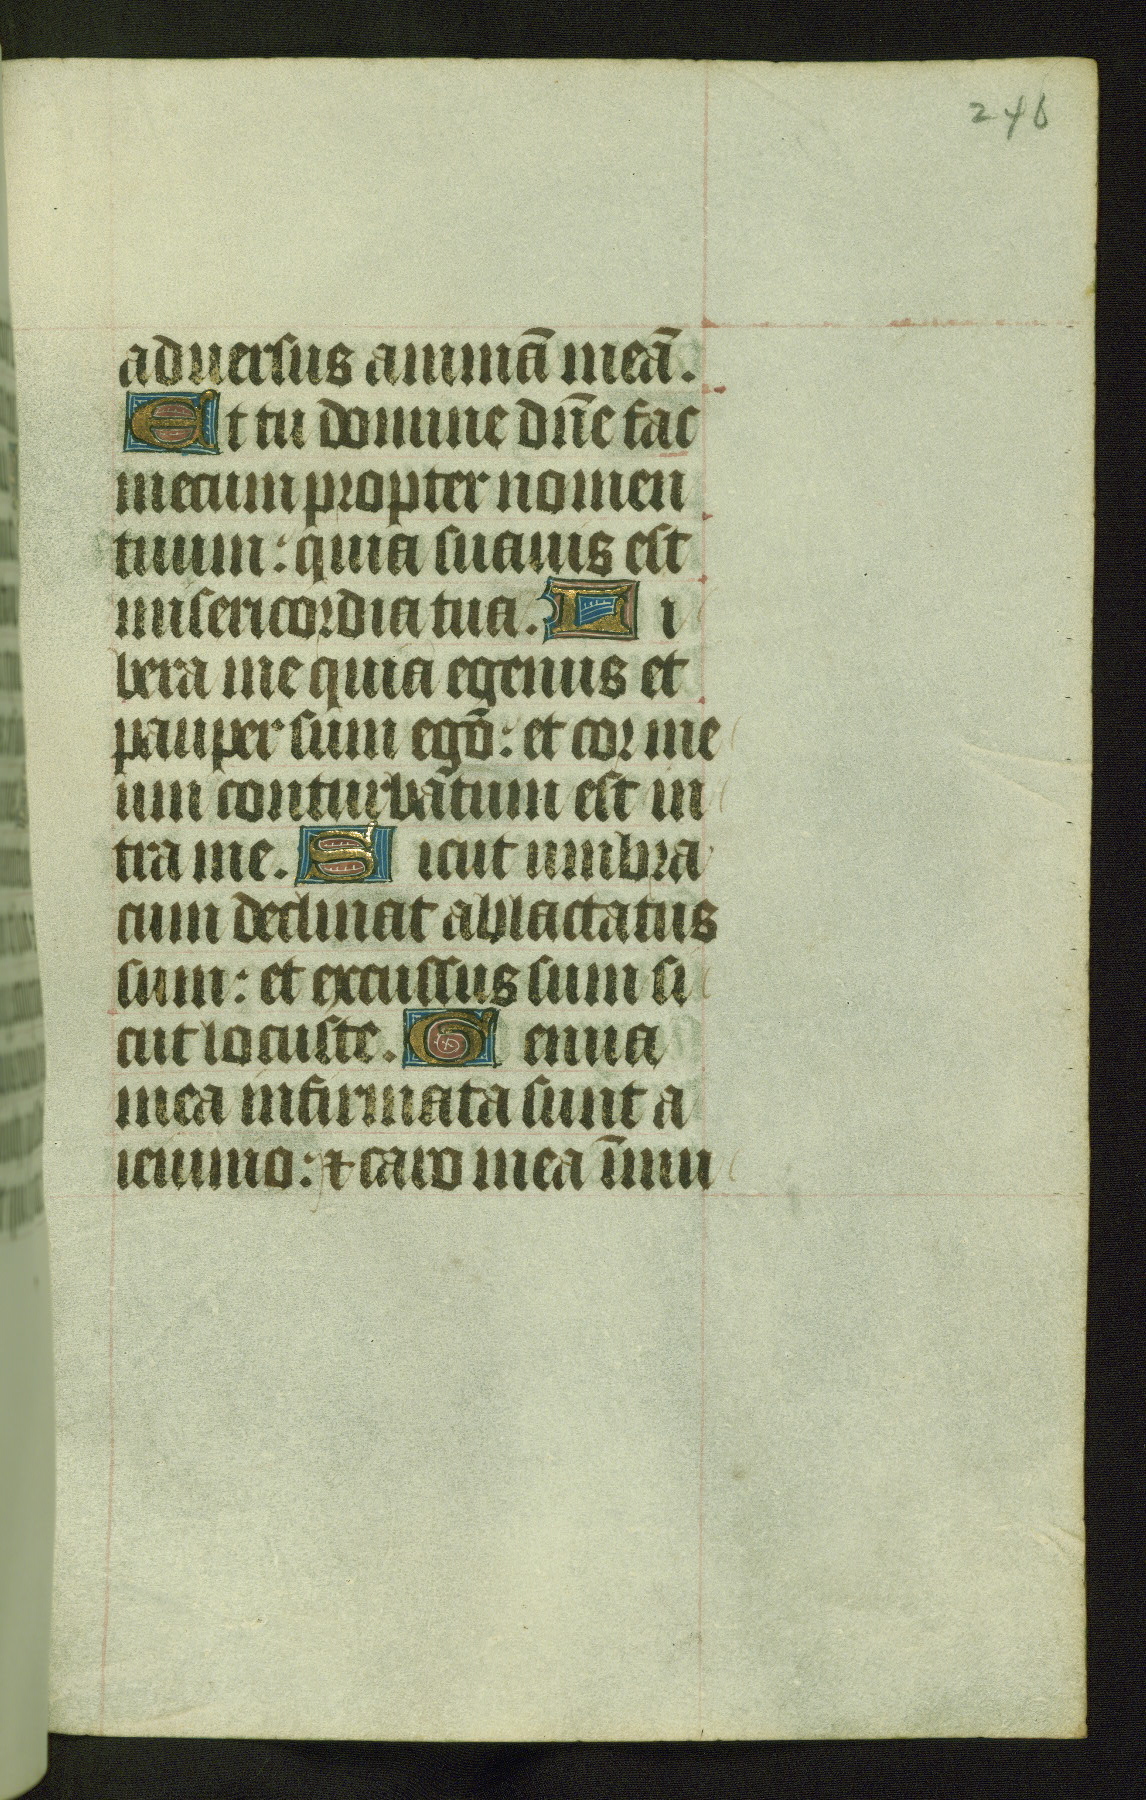 246
aduersus animā meā.
Et tu domine dn̄e fac
mecum propter nomen
tuum: quia suauis est
misericordia tua. Li
bera me quia egenus et
pauper sum ego: et cor me
um conturbatum est in
tra me. Sicut umbra
cum declinat ablactatus
sum: et excussus sum si
cut locuste. Genua
mea infirmata sunt a
ieiunio: ⁊ caro mea īmu